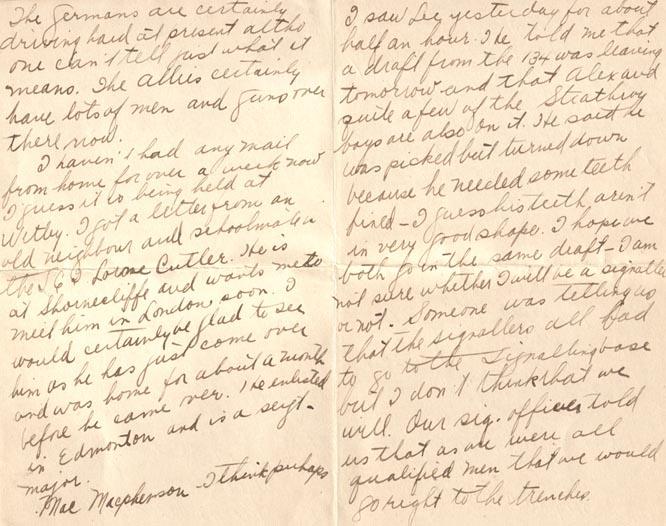 The Germans are certainly
driving hard at present altho
one can't tell just what it
means. The Allies certainly
have lots of men and guns over
there now.
I haven't had any mail
from home for over a week now
I guess it is being held at
Witley. I got a letter from an
old neighbour and schoolmate in
the Lorne Cutler. He is
at Shorncliffe and wants me to
meet him in London soon. I
would certainly be glad to see
him as he has just come over
and was home for about a month
before he came over. He enlisted
in Edmonton and is a sergt-
major.
Mac Macphenson - I think perhaps
I saw Lee yesterday for about
half an hour. He told me that
a draft from the 134 was leaving
tomorrow and that Alex and
quite a few of the Strathroy
boys are also on it. He said he
was picked but turned down
because he needed some teeth
fixed - I guess his teeth aren't
in very good shape. I hope we
both go in the same draft - I am
not sure whether I will be a signaller
or not. Someone was telling us
that the signallers all had
to go to the Signalling base
but I don't think that we
will. Our sig. officer told
us that as we were all
qualified men that we would
go right to the trenches.